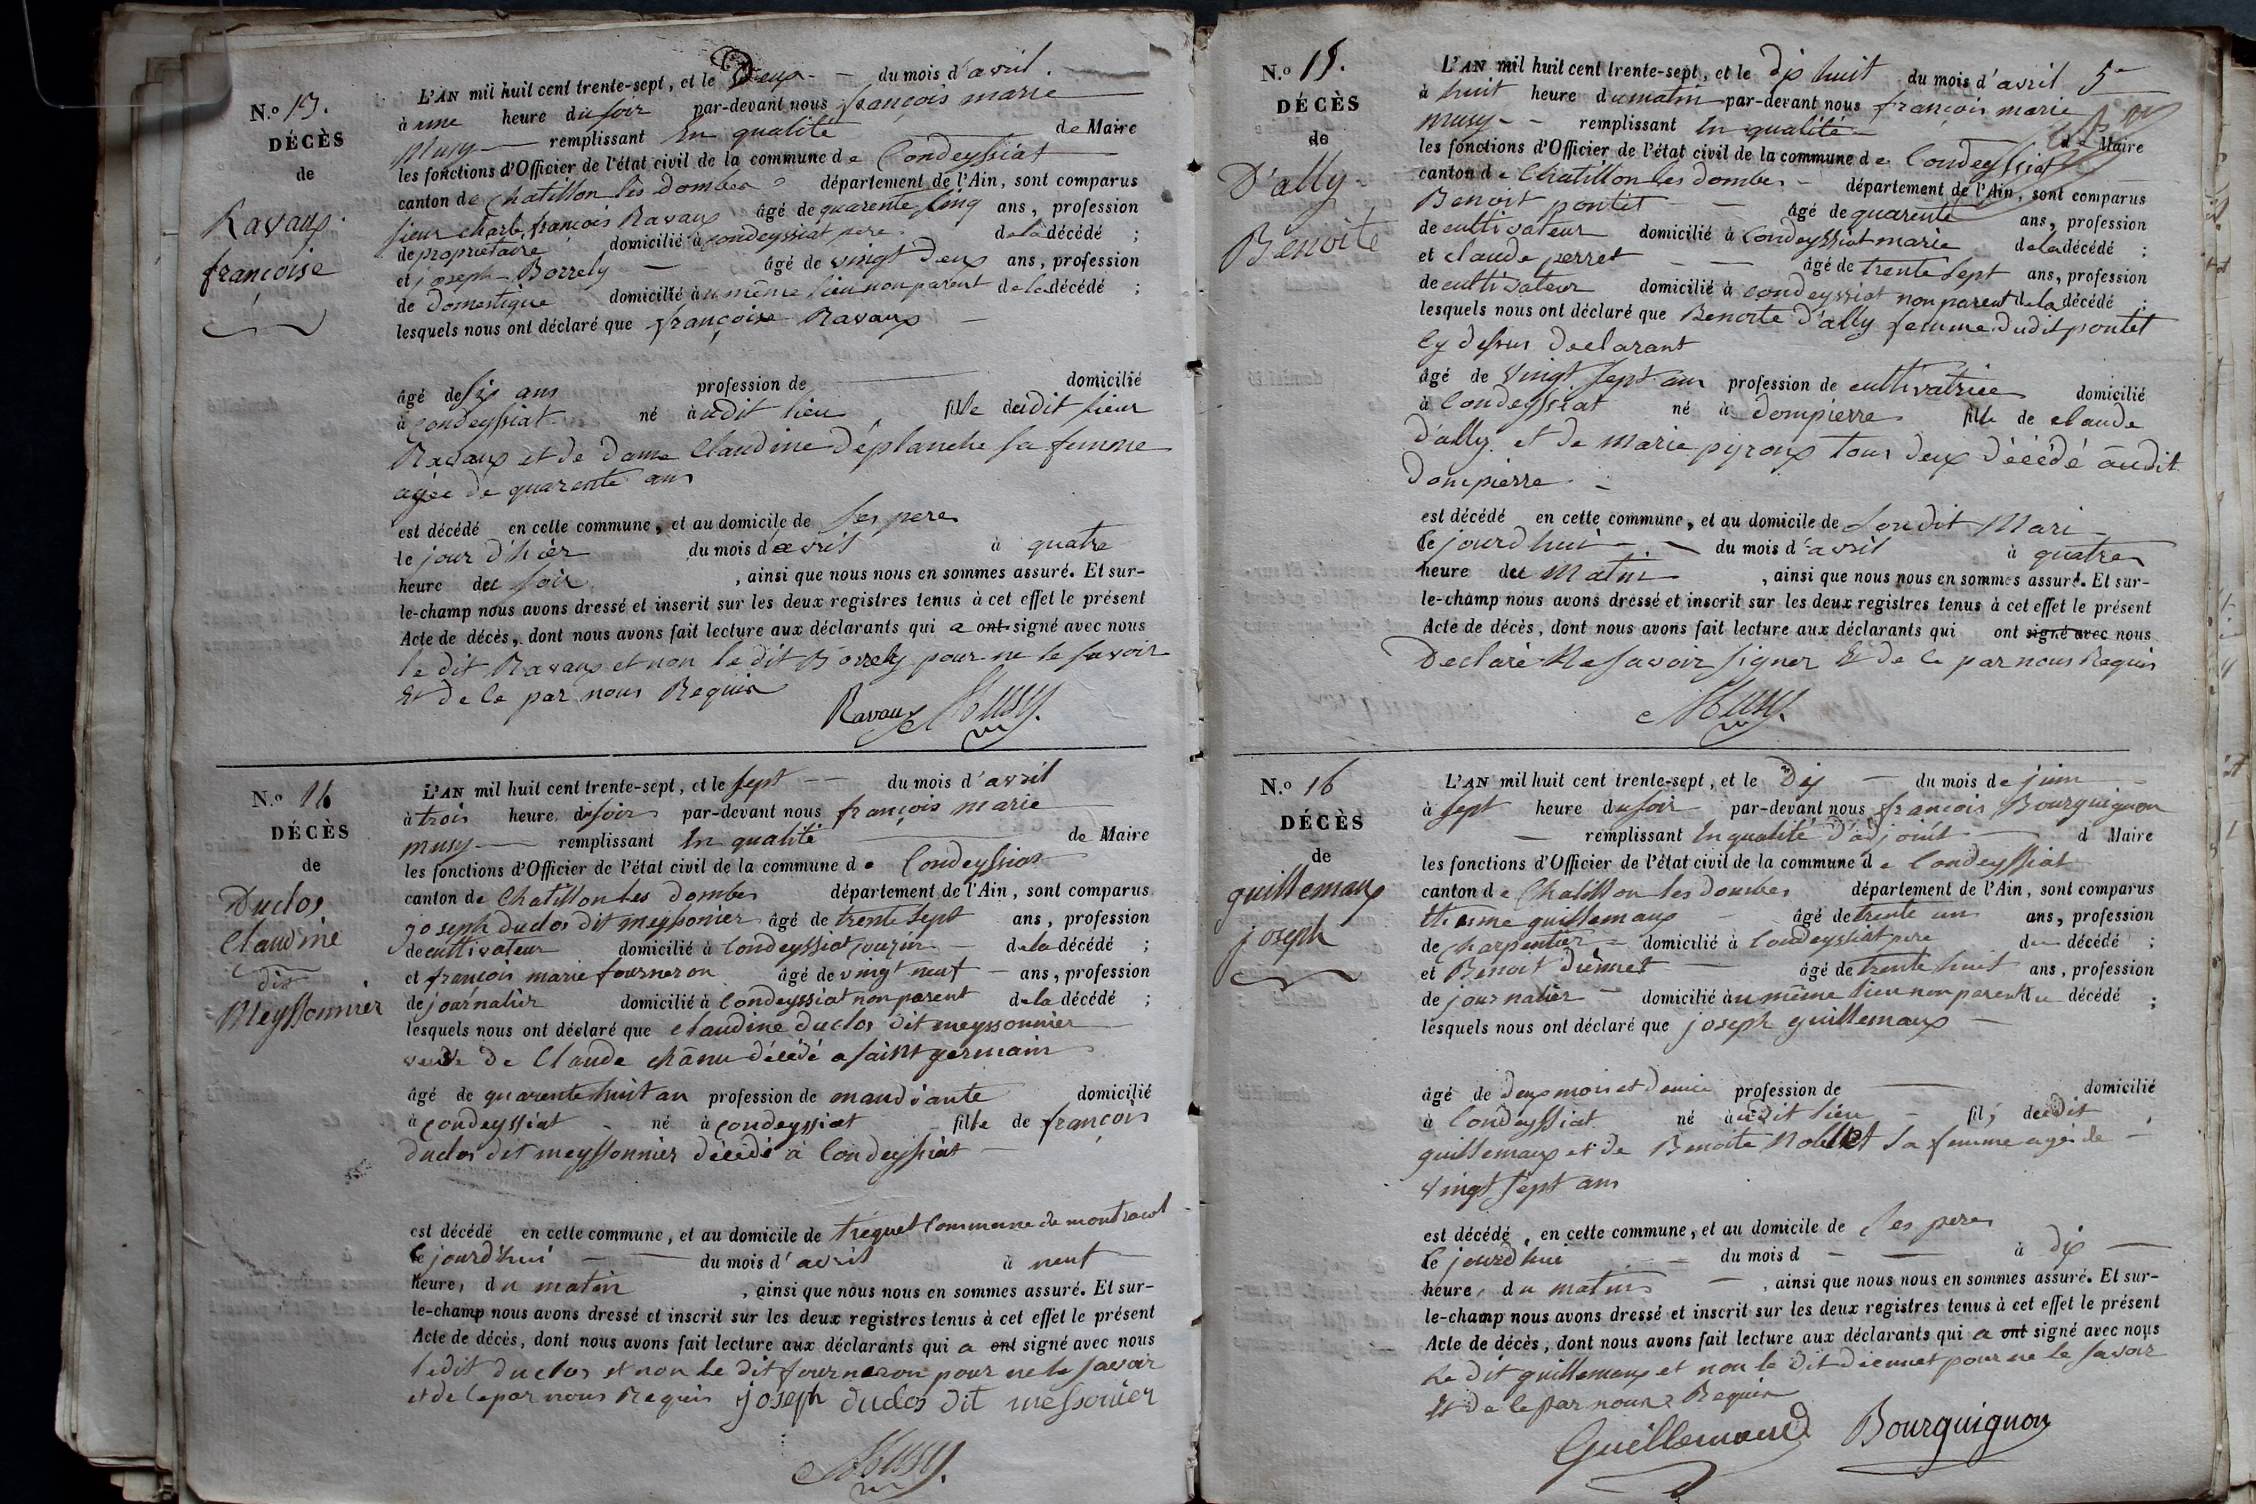 N.º 13.
DÉCÈS
de
Ravaux
françoise
L'AN mil huit cent trente-sept, et le Deux du mois d'avril.
à une heure du soir par-devant nous françois marie
Musy remplissant En qualité de Maire
les fonctions d'Officier de l'état civil de la commune de Condeyssiat
canton de Chatillon les Dombes département de l'Ain, sont comparus
sieur Charle françois Ravaux âgé de quarente Cinq ans, profession
de propriétaire domicilié à Condeyssiat pere de la décédé ;
et joseph Borrely âgé de vingt Deux ans, profession
de Domestique domicilié au même lieu non parent de la décédé ;
lesquels nous ont déclaré que françoise Ravaux
âgé de six ans profession de domicilié
à Condeyssiat né audit lieu fille dudit sieur
Ravaux et de Dame Claudine Déplanche sa femme
agée de quarente ans
est décédé en cette commune, et au domicile de ses pere
le jour d'hier du mois d'avril à quatre
heure du soir, ainsi que nous nous en sommes assuré. Et sur-
le-champ nous avons dressé et inscrit sur les deux registres tenus à cet effet le présent
Acte de décès, dont nous avons fait lecture aux déclarants qui a ont signé avec nous
le dit Ravaux et non le dit Borrely pour ne le savoir
Et de ce par nous Requis
Ravaux Musy
N.º 14
DÉCÈS
de
Duclos
Claudine
dit
Meyssonnier
L'AN mil huit cent trente-sept, et le sept du mois d'avril
à trois heure du soir par-devant nous françois marie
musy remplissant En qualité de Maire
les fonctions d'Officier de l'état civil de la commune de Condeyssiat
canton de Chatillon les Dombes département de l'Ain, sont comparus
joseph duclos dit meyssonier âgé de trente sept ans, profession
de cultivateur domicilié à Condeyssiat cousin de la décédé ;
et françois marie fourneron âgé de vingt neuf ans, profession
de journalier domicilié à Condeyssiat non parent de la décédé ;
lesquels nous ont déclaré que claudine duclos dit meyssonnier
veuve de Claude chânu décédé a saint germain
âgé de quarente huit an profession de mandiante domicilié
à condeyssiat né à condeyssiat fille de françois
duclos dit meyssonnier décédé à Condeyssiat
est décédé en cette commune, et au domicile de treguet commune de montracol
le jourd'hui du mois d'avril à neuf
heure, du matin, ainsi que nous nous en sommes assuré. Et sur-
le-champ nous avons dressé et inscrit sur les deux registres tenus à cet effet le présent
Acte de décès, dont nous avons fait lecture aux déclarants qui a ont signé avec nous
ledit duclos et non le dit fourneron pour ne le savoir
et de ce par nous Requis joseph duclos dit messonier
Musy
N.º 15.
DÉCÈS
de
D'ally
Benoite
L'AN mil huit cent trente-sept, et le dix huit du mois d'avril 5e
à huit heure du matin par-devant nous françois marie
musy remplissant En qualité de Maire
les fonctions d'Officier de l'état civil de la commune de Condeyssiat
canton de Chatillon les dombes département de l'Ain, sont comparus
Benoit pontet âgé de quarente ans, profession
de cultivateur domicilié à Condeyssiat marie de la décédé ;
et claude perret âgé de trente sept ans, profession
de cultivateur domicilié à condeyssiat non parent de la décédé ;
lesquels nous ont déclaré que Benoite D'ally femme dudit pontet
Cy dessus declarant
âgé de vingt sept an profession de cultivatrice domicilié
à Condeyssiat né à dompierre fille de claude
D'ally et de marie pyroux tous deux décédé audit
Dompierre
est décédé en cette commune, et au domicile de son dit Mari
le jourd'hui du mois d'avril à quatre
heure du matin, ainsi que nous nous en sommes assuré. Et sur-
le-champ nous avons dressé et inscrit sur les deux registres tenus à cet effet le présent
Acte de décès, dont nous avons fait lecture aux déclarants qui ont signé avec nous
Declaré Ne savoir signer Et de ce par nous Requis
Musy
N.º 16
DÉCÈS
de
guillemaux
joseph
L'AN mil huit cent trente-sept, et le Dix du mois de juin
à sept heure du soir par-devant nous françois Bourguignon
remplissant En qualité d'adjoint d Maire
les fonctions d'Officier de l'état civil de la commune de Condeyssiat
canton de Chatillon les dombes département de l'Ain, sont comparus
guillemaux âgé de trente un ans, profession
de charpentier domicilié à Condeyssiat pere du décédé ;
et Benoit diennet âgé de trente huit ans, profession
de journalier domicilié au même lieu non parent du décédé ;
lesquels nous ont déclaré que joseph guillemaux
âgé de deux mois et demie profession de domicilié
à Condeyssiat né audit lieu fils dudit
guillemaux et de Benoite Noblet sa femme agé de
vingt sept ans
est décédé, en cette commune, et au domicile de ses pere
le jourd'hui du mois d à dix
heure, du matin, ainsi que nous nous en sommes assuré. Et sur-
le-champ nous avons dressé et inscrit sur les deux registres tenus à cet effet le présent
Acte de décès, dont nous avons fait lecture aux déclarants qui a ont signé avec nous
Le dit guillemaux et non le dit diennet pour ne le savoir
Et de ce par nous Requis
Guillemaud Bourguignon